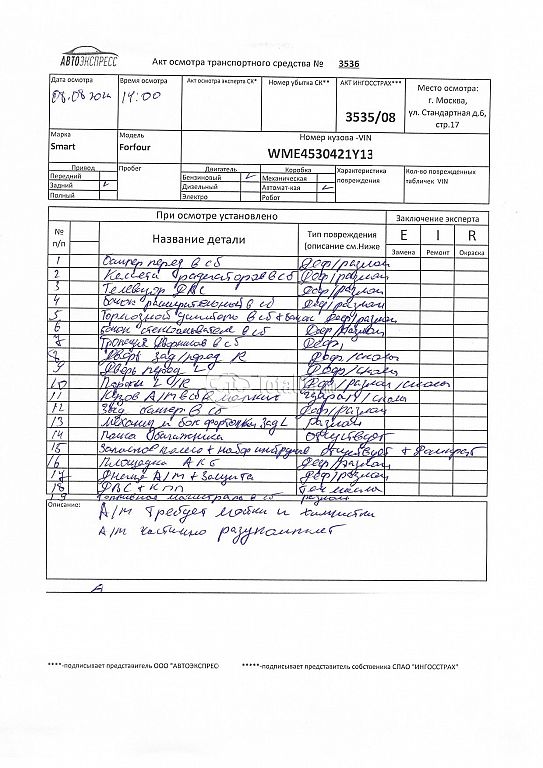 АВТОЭКСПРЕСС
Акт осмотра транспортного средства № 3536
Дата осмотра
Время осмотра
Акт осмотра эксперта СК*
Номер убытка СК**
АКТ ИНГОССТРАХ***
Место осмотра:
г. Москва,
ул. Стандартная д.6,
стр.17
14:00
3535/08
Марка
Smart
Модель
Forfour
Номер кузова -VIN
WME4530421Y13
Привод
Передний
Задний ✓
Полный
Пробег
Двигатель
Бензиновый ✓
Дизельный
Электро
Коробка
Механическая
Автомат-кая ✓
Робот
Характеристика повреждения
Кол-во поврежденных табличек VIN
При осмотре установлено
Заключение эксперта
№ п/п
Название детали
Тип повреждения (описание см.Ниже
E I R
Замена Ремонт Окраска
1 Бампер перед в сб Деф/разлом
2 Кассета радиаторов в сб Деф/разлом
3 Телевизор ДВС Деф/разлом
4 Бачок расширительный в сб Деф/разлом
5 Тормозной цилиндр в сб + бачок Деф/разлом
6 Бачок стеклоомывателя в сб Деф/разлом
7 Трапеция дворников в сб Деф/
8 Дверь зад/перед R Деф/сколы
9 Дверь перед L Деф/сколы
10 Пороги L/R Деф/разлом/сколы
11 Кузов А/м в сб
12 Зад бампер в сб Деф/разлом
13 Разлом
14 Полка багажника Отсутствует
15 Запасное колесо + набор инструмента Отсутствует +
16 Площадка АКБ Деф/разлом
17 Днище А/м + Защита Деф/разлом
18 ДВС + КПП
19 Топливная магистраль в сб разлом
Описание:
А/м требует мойки и химчистки
А/м частично разукомплект
****-подписывает представитель ООО "АВТОЭКСПРЕС
*****-подписывает представитель собственика СПАО "ИНГОССТРАХ"